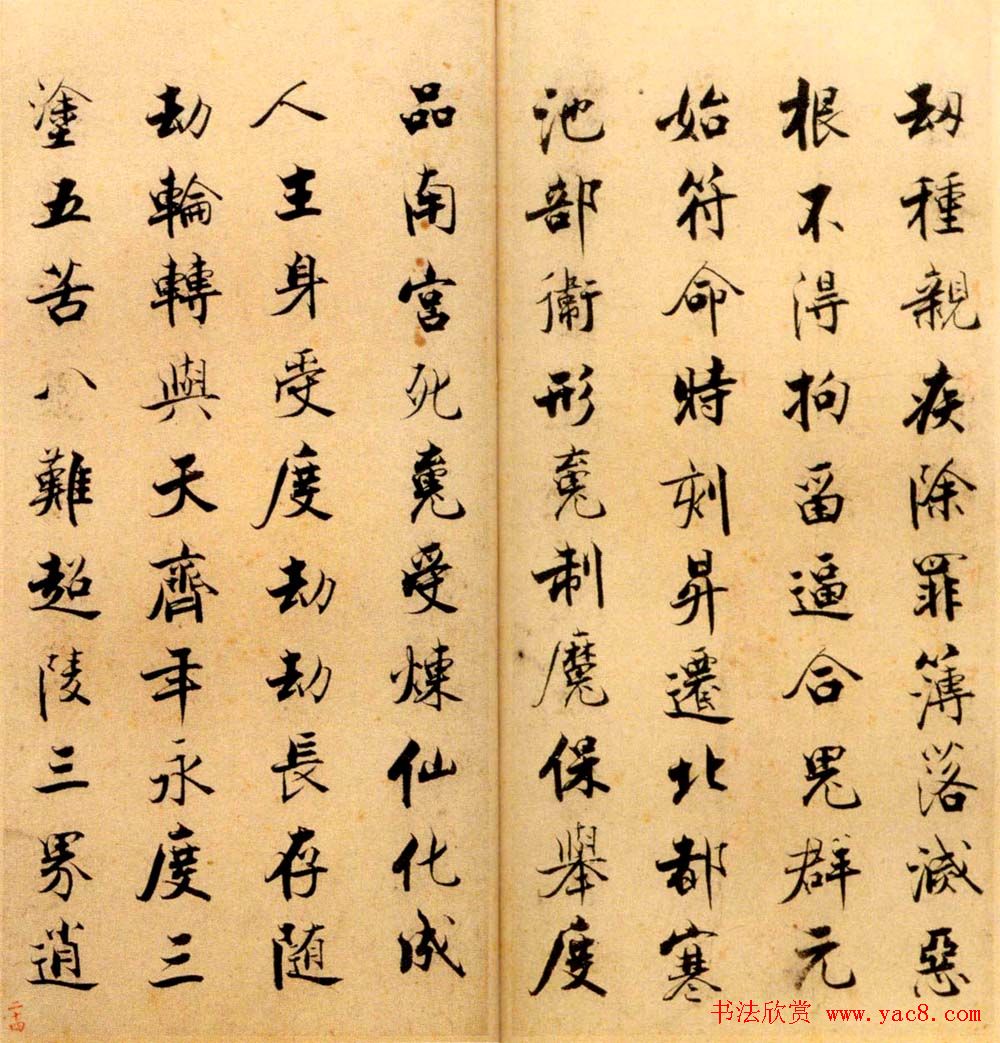 劫種親疾除罪簿落滅惡
根不得拘留逼合鬼群元
始符命時刻昇遷北都寒
池部衛形魂制魔保舉度
品南宮死魂受煉仙化成
人主身受度劫劫長存隨
劫輪轉與天齊年永度三
塗五苦八難超陵三界逍
二十四
书法欣赏 www.yac8.com